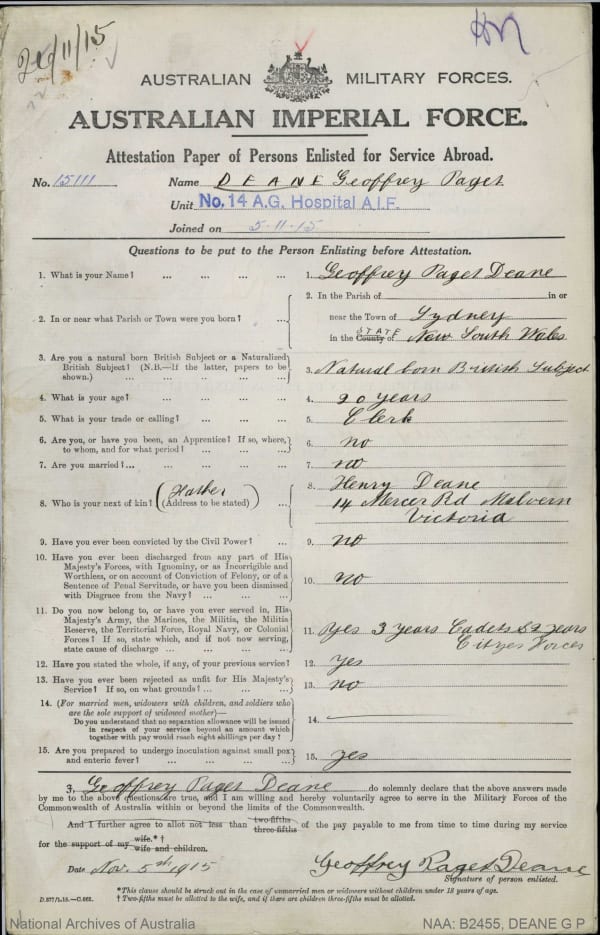 26/11/15
AUSTRALIAN MILITARY FORCES.
AUSTRALIAN IMPERIAL FORCE.
Attestation Paper of Persons Enlisted for Service Abroad.
No. 15111 Name DEANE Geoffrey Paget
Unit No. 14 A.G. Hospital A.I.F.
Joined on 5-11-15
Questions to be put to the Person Enlisting before Attestation.
1. What is your Name? ... ... ... ... 1. Geoffrey Paget Deane
2. In or near what Parish or Town were you born? ... 2. In the Parish of in or
near the Town of Sydney
in the County of STATE New South Wales
3. Are you a natural born British Subject or a Naturalized
British Subject? (N.B.—If the latter, papers to be
shown.) ... ... ... ... 3. Natural born British Subject
4. What is your age? ... ... ... ... 4. 20 years
5. What is your trade or calling? ... ... ... 5. Clerk
6. Are you, or have you been, an Apprentice? If so, where,
to whom, and for what period? ... ... ... 6. no
7. Are you married? ... ... ... ... 7. no
8. Who is your next of kin? (Father) (Address to be stated) ... 8. Henry Deane
14 Mercer Rd Malvern
Victoria
9. Have you ever been convicted by the Civil Power? ... 9. no
10. Have you ever been discharged from any part of His
Majesty's Forces, with Ignominy, or as Incorrigible and
Worthless, or on account of Conviction of Felony, or of a
Sentence of Penal Servitude, or have you been dismissed
with Disgrace from the Navy? ... ... ... 10. no
11. Do you now belong to, or have you ever served in, His
Majesty's Army, the Marines, the Militia, the Militia
Reserve, the Territorial Force, Royal Navy, or Colonial
Forces? If so, state which, and if not now serving,
state cause of discharge ... ... ... 11. Yes 3 years Cadets & 2 years
Citzes Forces
12. Have you stated the whole, if any, of your previous service? 12. yes
13. Have you ever been rejected as unfit for His Majesty's
Service? If so, on what grounds? ... ... ... 13. no
14. (For married men, widowers with children, and soldiers who
are the sole support of widowed mother)—
Do you understand that no separation allowance will be issued
in respect of your service beyond an amount which
together with pay would reach eight shillings per day? 14.
15. Are you prepared to undergo inoculation against small pox
and enteric fever? ... ... ... ... 15. yes
3. Geoffrey Paget Deane do solemnly declare that the above answers made
by me to the above questions are true, and I am willing and hereby voluntarily agree to serve in the Military Forces of the
Commonwealth of Australia within or beyond the limits of the Commonwealth.
And I further agree to allot not less than two-fifths three-fifths of the pay payable to me from time to time during my service
for the support of my wife.*† wife and children.
Date Nov. 5th 1915 Geoffrey Paget Deane
Signature of person enlisted.
* This clause should be struck out in the case of unmarried men or widowers without children under 18 years of age.
D.577/1.15.—C.661. † Two-fifths must be allotted to the wife, and if there are children three-fifths must be allotted.
National Archives of Australia NAA: B2455, DEANE G P